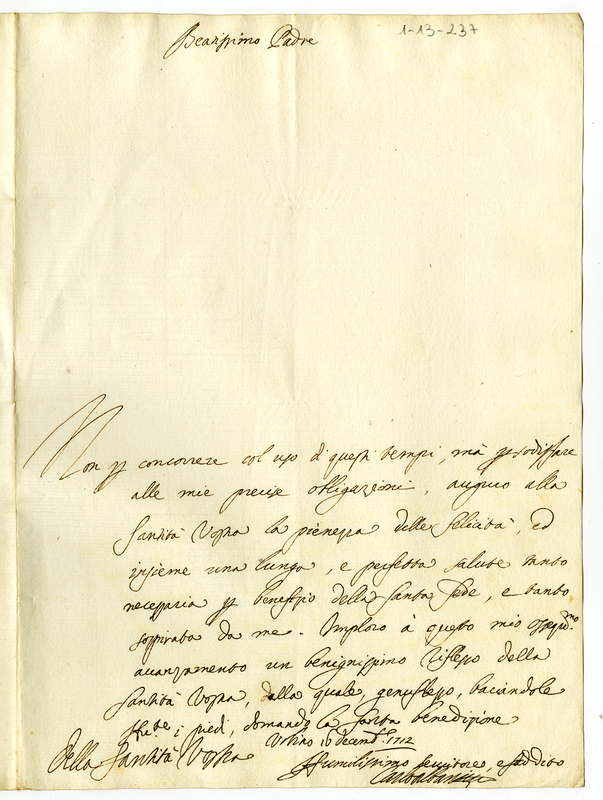 Beatissimo Padre
1-13-237
Non p concorrere col uso di questi tempi, mà p sodisfare
alle mie precise obligazioni, auguro alla
Santità Vostra la pienezza delle felicità, ed
insieme una lunga, e perfetta salute tanto
necessaria p benefizio della Santa Sede, e tanto
sospirata da me. Imploro à questo mio osseq.mo
avanzamento un benignissimo riflesso della
Santità Vostra, dalla quale, genuflesso, baciandole
i piedi, domando la santa benedizione
Della Santità Vostra
Urbino 16 Decemb. 1712
Humilissimo servitore, e suddito